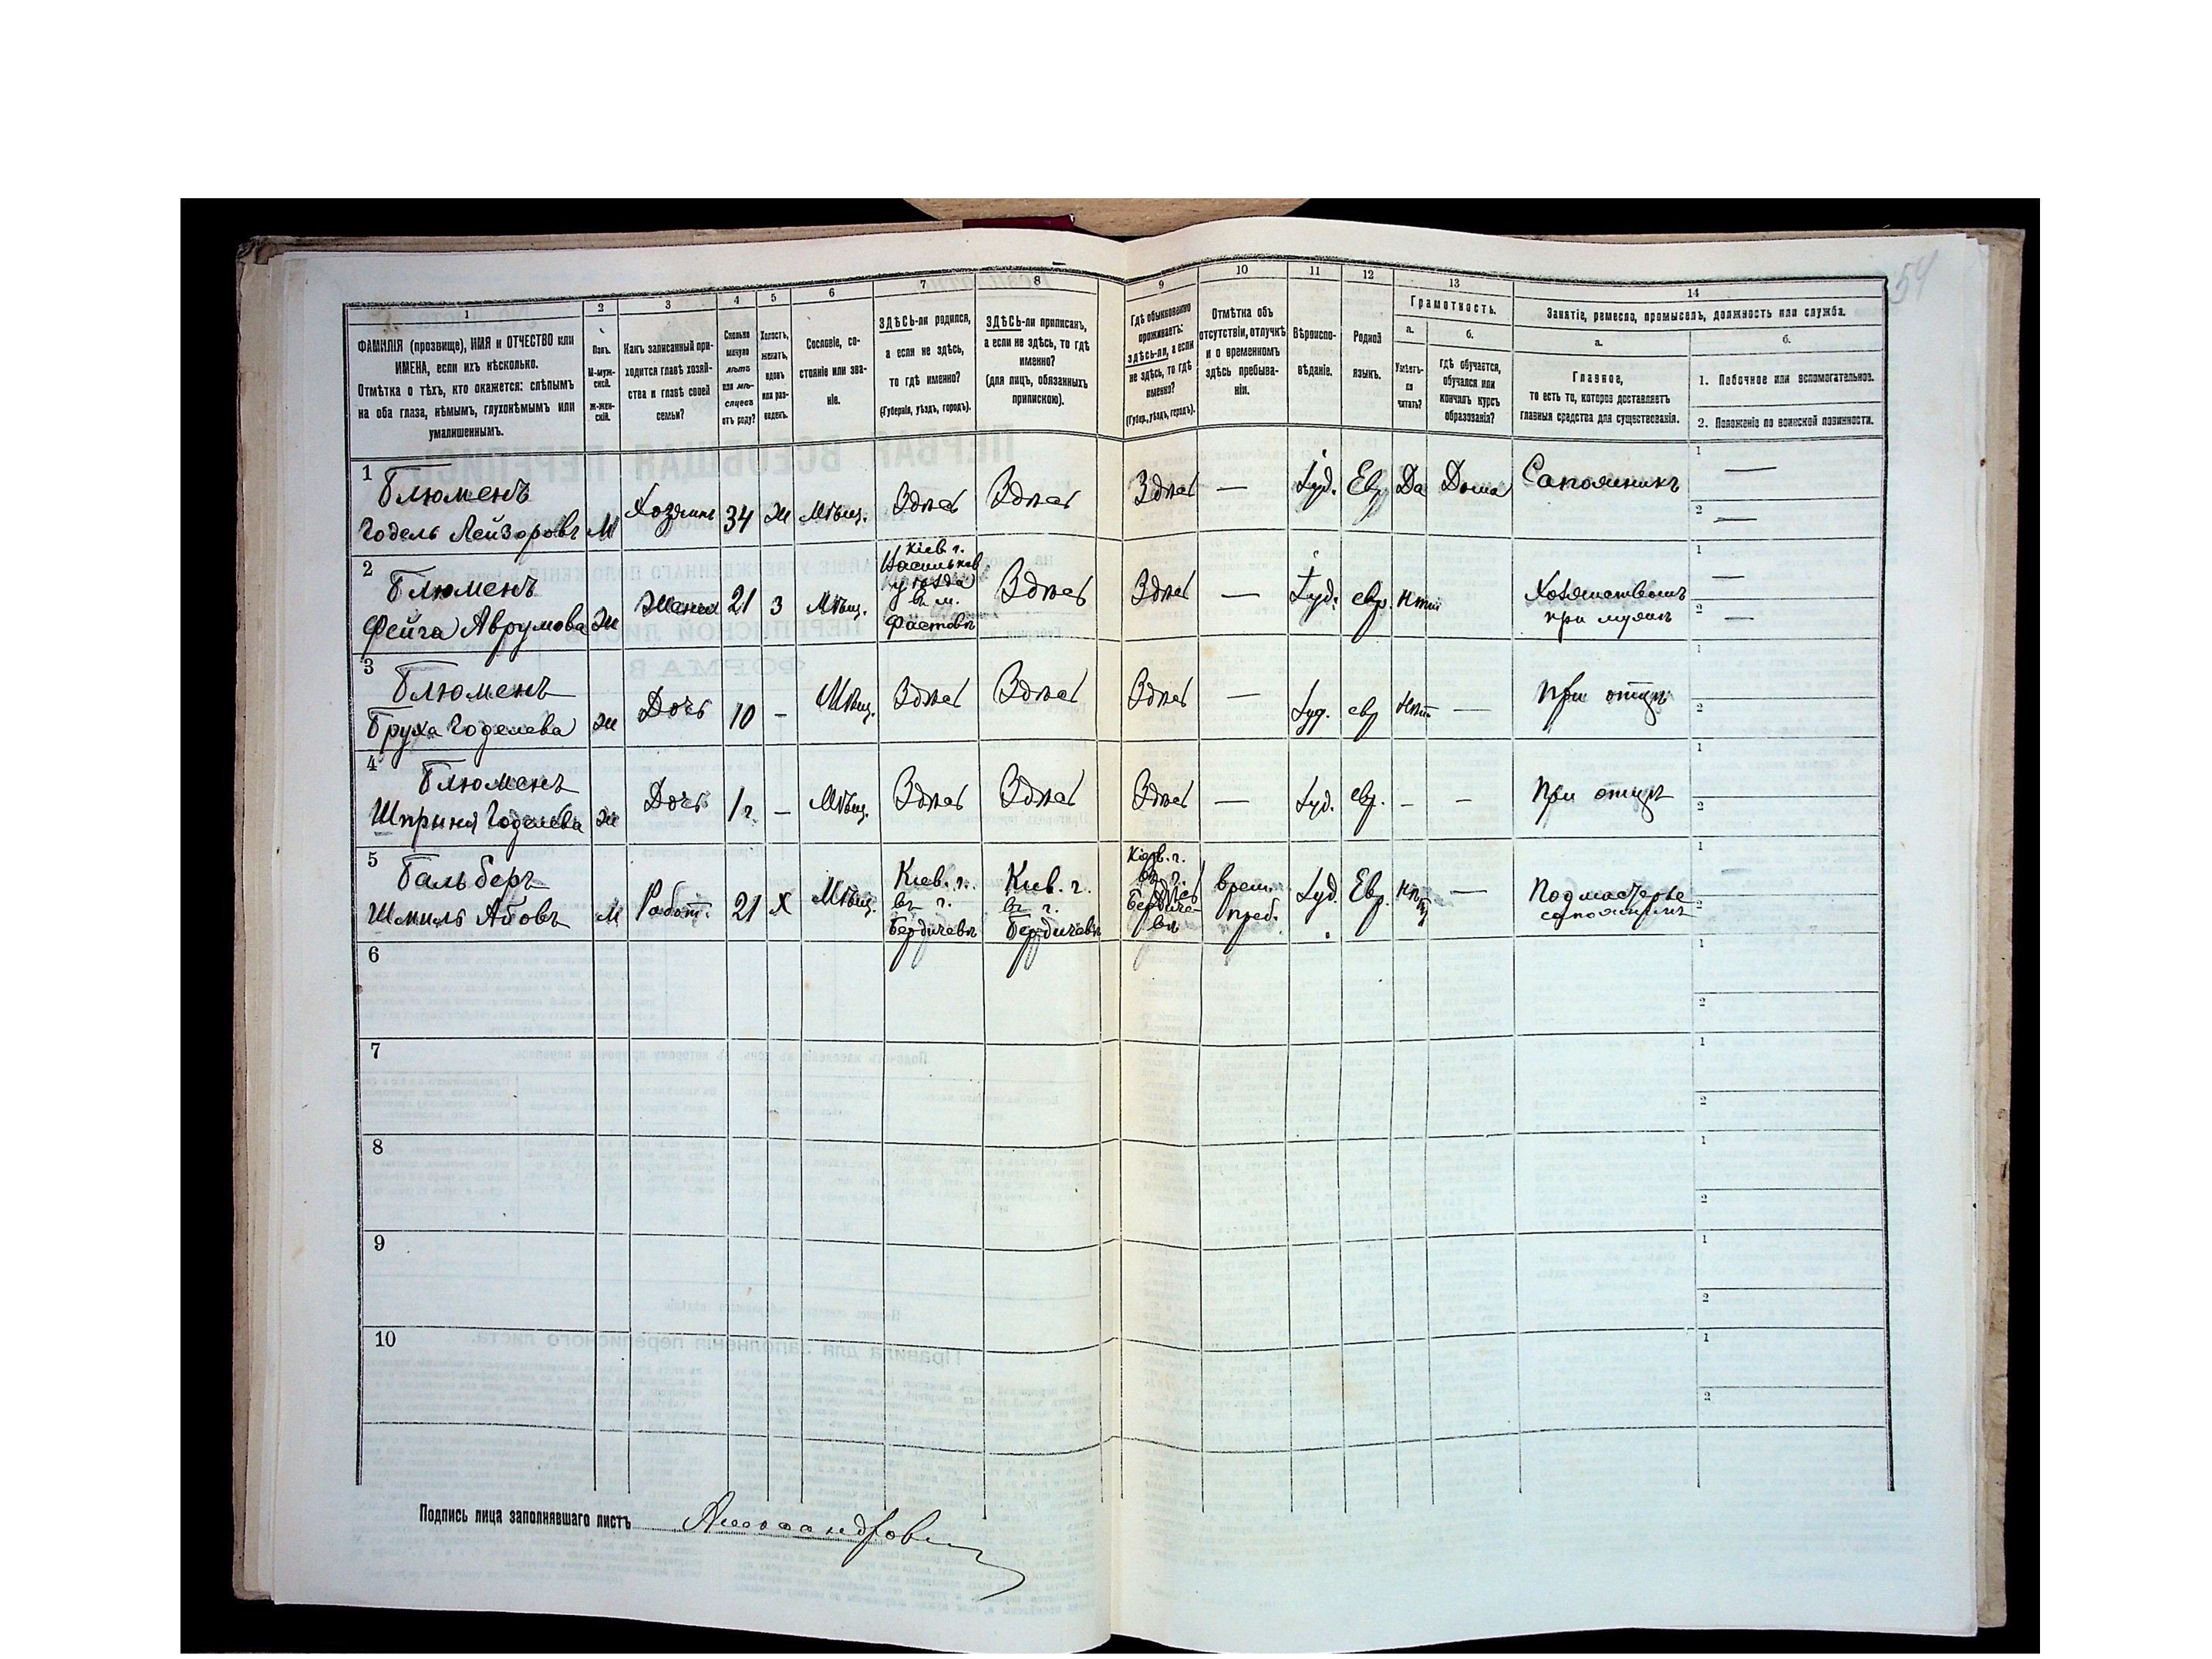 54
1 2 3 4 5 6 7 8 9 10 11 12 13 14
ФАМИЛІЯ (прозвище), ИМЯ и ОТЧЕСТВО или
ИМЕНА, если ихъ нѣсколько.
Отмѣтка о тѣхъ, кто окажется: слѣпымъ
на оба глаза, нѣмымъ, глухонѣмымъ или
умалишеннымъ.
Полъ.
М-муж-
ской.
Ж-жен-
скій.
Какъ записанный при-
ходится главѣ хозяй-
ства и главѣ своей
семьи?
Сколько
минуло
лѣтъ
или мѣ-
сяцевъ
отъ роду?
Холостъ,
женатъ,
вдовъ
или раз-
веденъ.
Сословіе, со-
стояніе или зва-
ніе.
ЗДѢСЬ-ли родился,
а если не здѣсь,
то гдѣ именно?
(Губернія, уѣздъ, городъ).
ЗДѢСЬ-ли приписанъ,
а если не здѣсь, то гдѣ
именно?
(для лицъ, обязанныхъ
припискою).
Гдѣ обыкновенно
проживаетъ:
здѣсь-ли, а если
не здѣсь, то гдѣ
именно?
(Губер., уѣздъ, городъ).
Отмѣтка объ
отсутствіи, отлучкѣ
и о временномъ
здѣсь пребыва-
ніи.
Вѣроиспо-
вѣданіе.
Родной
языкъ.
Грамотность.
а.
Умѣетъ-
ли
читать?
б.
Гдѣ обучается,
обучался или
кончилъ курсъ
образованія?
Занятіе, ремесло, промыселъ, должность или служба.
а.
Главное,
то есть то, которое доставляетъ
главныя средства для существованія.
б.
1. Побочное или вспомогательное.
2. Положеніе по воинской повинности.
1
Блюменъ
Годель Лейзоровъ М Хозяинъ 34 Ж Мѣщ. Здѣсь Здѣсь Здѣсь — Іуд. Евр. Да Дома Сапожникъ
1 —
2 —
2
Блюменъ
Фейга Аврумова Ж Жена 21 З Мѣщ.
Кіев. г.
Васильков.
уѣзда
в м.
Фастовѣ
Здѣсь Здѣсь — Іуд. евр. нѣтъ
Хозяйствомъ
при мужѣ
1 —
2 —
3
Блюменъ
Бруха Годелева Ж Дочь 10 - Мѣщ. Здѣсь Здѣсь Здѣсь — Іуд. евр. Нѣтъ — При отцѣ
1
2
4
Блюменъ
Шпрыня Годелева Ж Дочь 1 г. - Мѣщ. Здѣсь Здѣсь Здѣсь — Іуд. евр. - - При отцѣ
1
2
5
Бальберъ
Шмиль Абовъ М Работ. 21 Х Мѣщ.
Кіев. г.
въ г.
Бердичевѣ
Кіев. г.
въ г.
Бердичевѣ
Кіев. г.
въ г.
Бердиче-
вѣ
врем.
преб.
Іуд. Евр. нѣтъ —
Подмастерье
сапожникъ
1
2
6 1
2
7 1
2
8 1
2
9 1
2
10 1
2
Подпись лица заполнявшаго листъ